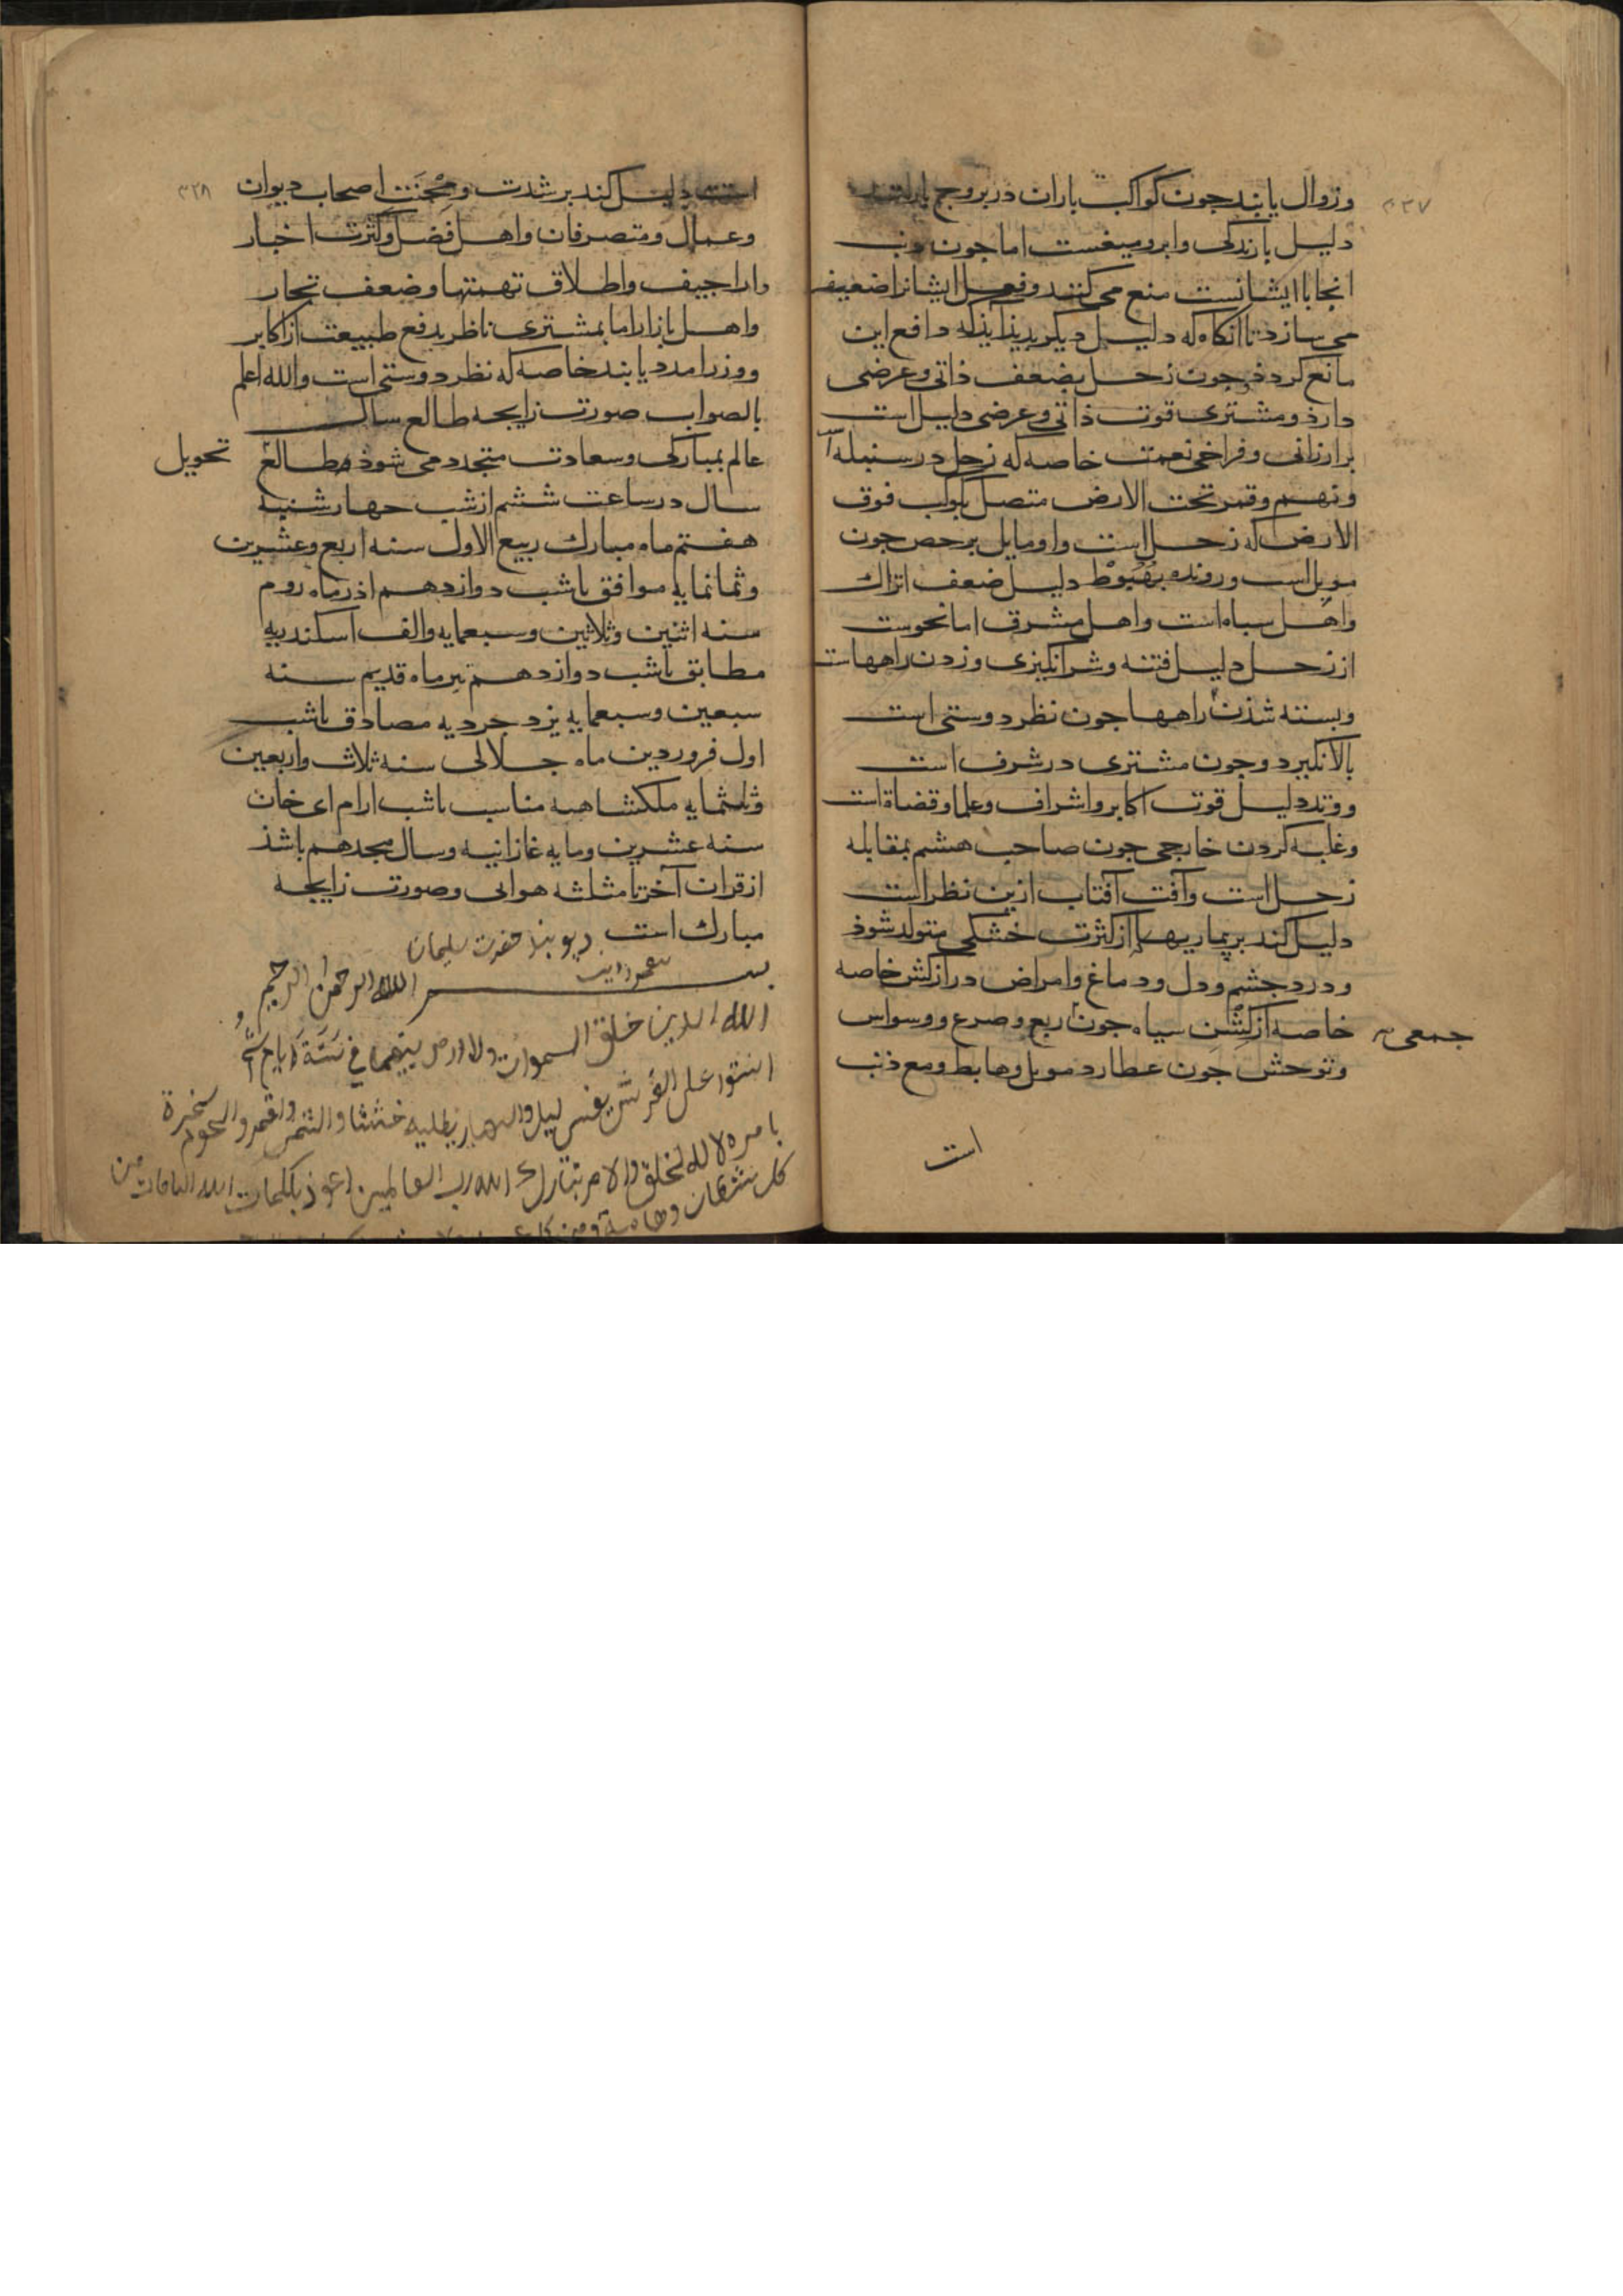 ۳۲۷
وزوال یابند جون کواکب باران در بروج
دلیل بارندکی وابرومیغست اما جون ذنب
انجا باایشانست منع می کنند وفعل ایشانرا ضعیف
می سازد تا انکاه که دلیل دیکر بدید آید که دافع این
مانع کردد وجون زحل بضعف ذاتی وعرضی
دارد ومشتری قوت ذاتی وعرضی دلیل است
برارزانی وفراخی نعمت خاصه که زحل در سنبله
ونهم وقمر تحت الارض متصل بکوکب فوق
الارض که زحل است واومایل برحص جون
موبل است ورونده بهبوط دلیل ضعف اتراک
واهل سپاه است واهل مشرق اما نحوست
از زحل دلیل فتنه وشر انکیزی وزدن راههاست
وبسته شذن راهها جون نظر دوستی است
بالا نکیرد وجون مشتری در شرف است
ووتد دلیل قوت اکابر واشراف وعلما وقضاة است
وغلبه کردن خارجی جون صاحب هشتم بمقابله
زحل است وآفت آفتاب ازین نظر است
دلیل کند بر بیماریها که از کثرت خشکی متولد شوذ
ودرد جشم ودل ودماغ وامراض دراز کش خاصه
خاصه از کشن سیاه جون ربع وصرع ووسواس
جمعی
وتوحش جون عطارد موبل وهابط ومع ذنب
است
۳۲۸
است دلیل کند بر شدت ومحنت اصحاب دیوان
وعمال ومتصرفان واهل فضل وکثرت اخبار
واراجیف واطلاق تهمتها وضعف تجار
واهل بازار اما بمشتری ناظر بدفع طبیعت از اکابر
ووزرا مدد یابند خاصه که نظر دوستی است والله اعلم
بالصواب صورت زایجه طالع سال
عالم بمبارکی وسعادت متجدد می شوذ وطالع
تحویل
سال در ساعت ششم از شب جهارشنبه
هفتم ماه مبارک ربیع الاول سنه اربع وعشرین
وثمانمایه موافق باشب دوازدهم اذرماه روم
سنه اثنین وثلاثین وسبعمایه والف اسکندریه
مطابق باشب دوازدهم تیرماه قدیم سنه
سبعین وسبعمایه یزدجردیه مصادق باشب
اول فروردین ماه جلالی سنه ثلاث واربعین
وثلثمایه ملکشاهیه مناسب باشب ارام ای خان
سنه عشرین ومایه غازانیه وسال هجدهم باشذ
از قران آخر تا مثلثه هوائی وصورت زایجه
مبارک است دیو بند حضرت سلیمان
بسم الله الرحمن الرحیم
الله الذین خلق السموات ولاارض بینهما فی ستة ایام
استوا علی العرش یغسی لیل والنهار یطلبه حثثا والشمس واقمر والنجوم سخرة
بامره لالله لخلق والامر تبارک الله رب العالمین اعوذ بکلمات الله التامات من
کل شیطان وهامة ومن کل